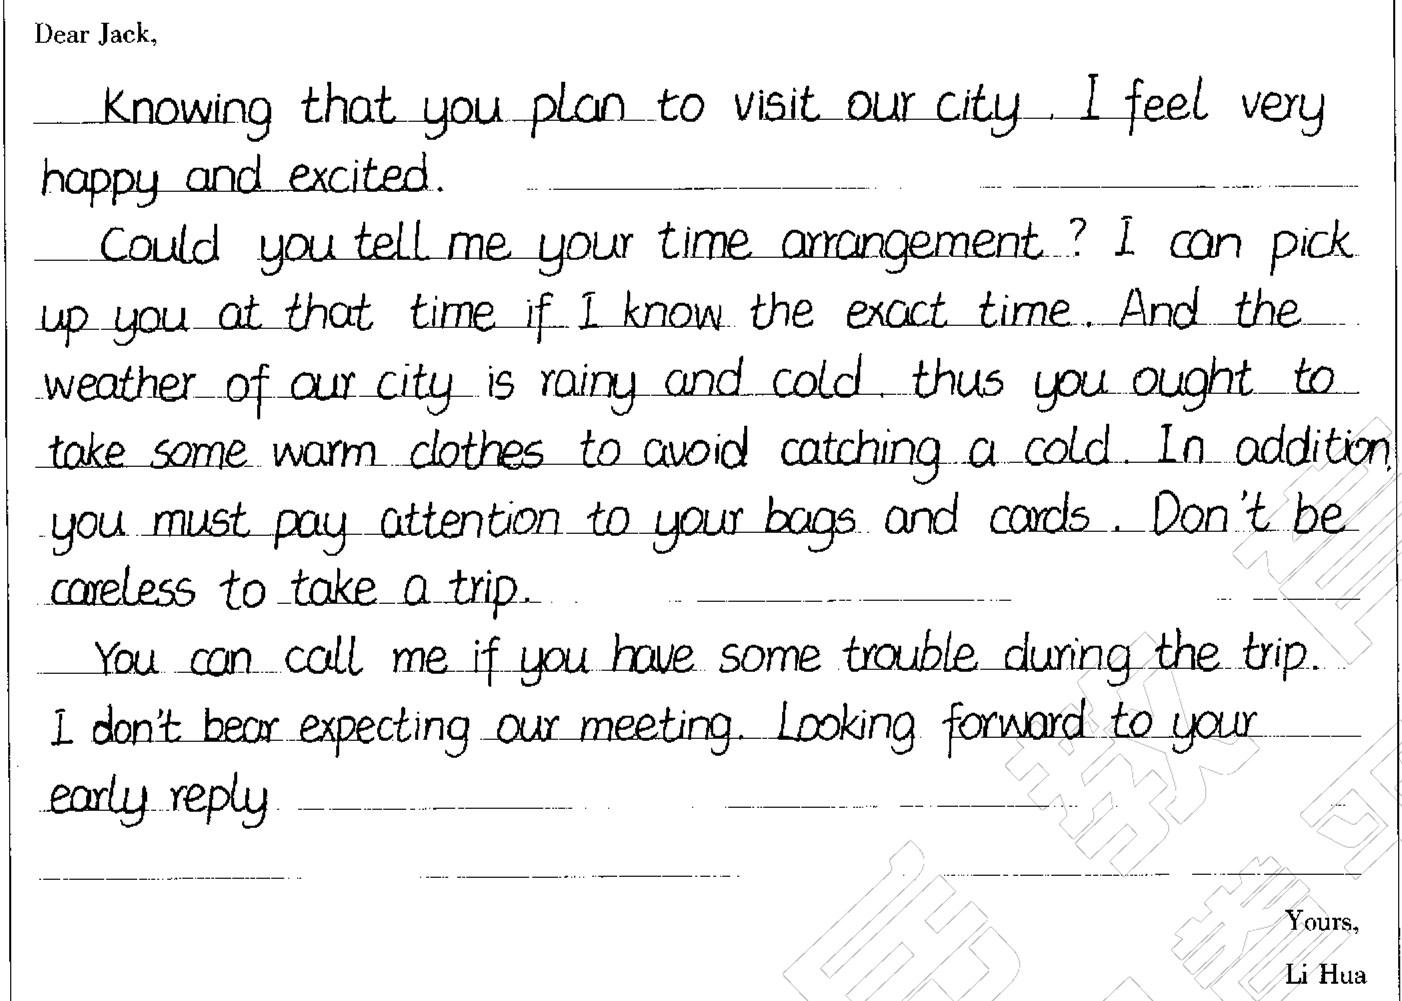 Dear Jack,
Knowing that you plan to visit our city. I feel very
happy and excited.
Could you tell me your time arrangement? I can pick
up you at that time if I know the exact time. And the
weather of our city is rainy and cold. thus you ought to
take some warm clothes to avoid catching a cold. In addition,
you must pay attention to your bags and cards. Don't be
careless to take a trip.
You can call me if you have some trouble during the trip.
I don't bear expecting our meeting. Looking forward to your
early reply
Yours,
Li Hua